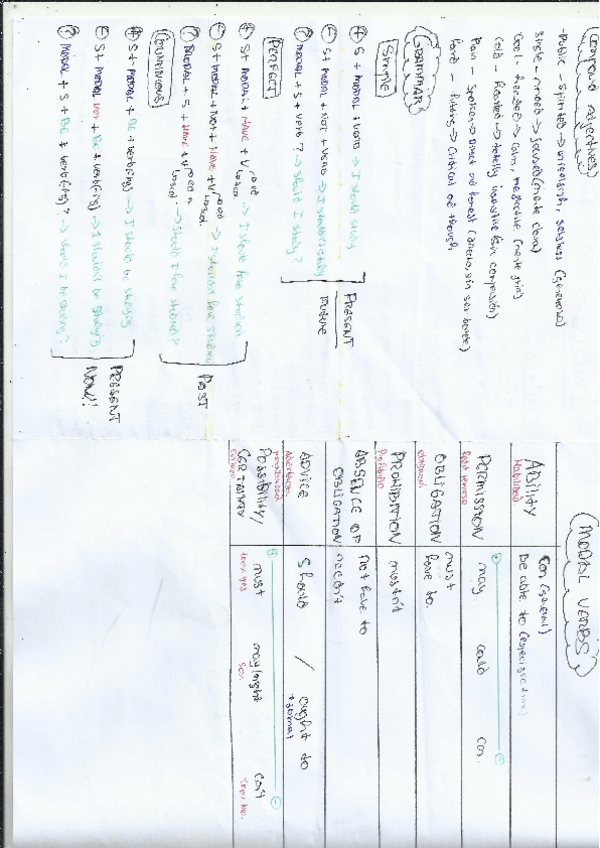 Compound adjectives
- Public - Spirited → unselfish, selfless (generoso)
Single - minded → focused (mente clara)
Cool - headed → calm, (mente fría)
Cold - hearted → totally insensitive (sin compasión)
Plain - spoken → direct and honest (directo, sin ser borde)
Hard - hitting → critical and through
GRAMMAR
Simple
+ S + MODAL + verb → I should study
- S + MODAL + NOT + verb → I shouldn't study
? MODAL + S + verb? → Should I study?
PRESENT
FUTURE
PERFECT
+ S + MODAL + HAVE + V → I should have studied
- S + MODAL + NOT + HAVE + V → I shouldn't have studied
? MODAL + S + HAVE + V → Should I have studied?
PAST
CONTINUOUS
+ S + MODAL + BE + verb(ing) → I should be studying
- S + MODAL NOT + BE + verb(ing) → I shouldn't be studying
? MODAL + S + BE + verb(ing)? → Should I be studying?
PRESENT
NOW!!
MODAL VERBS
ABILITY
Habilidad
Can (general)
Be able to
PERMISSION
Pedir permiso
+ -
may could can
OBLIGATION
obligación
must
have to
PROHIBITION
Prohibido
mustn't
ABSENCE OF
OBLIGATION
not have to
needn't
ADVICE
should / ought to
POSSIBILITY/
CERTAINTY
certeza
+ -
must may/might can't
100% yes 50% 100% no.